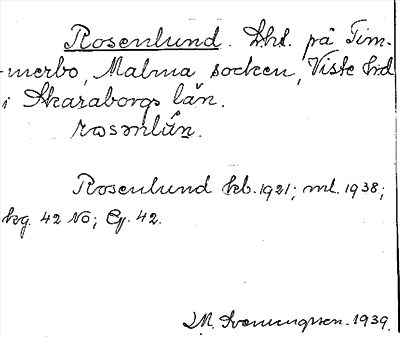 Rosenlund. Lht. på Tim-
merbo, Malma socken, Viste hd
i Skaraborgs län.
rosənlún.
Rosenlund kb. 1921; ml. 1938;
kg. 42 NO; Eg. 42.
1939.